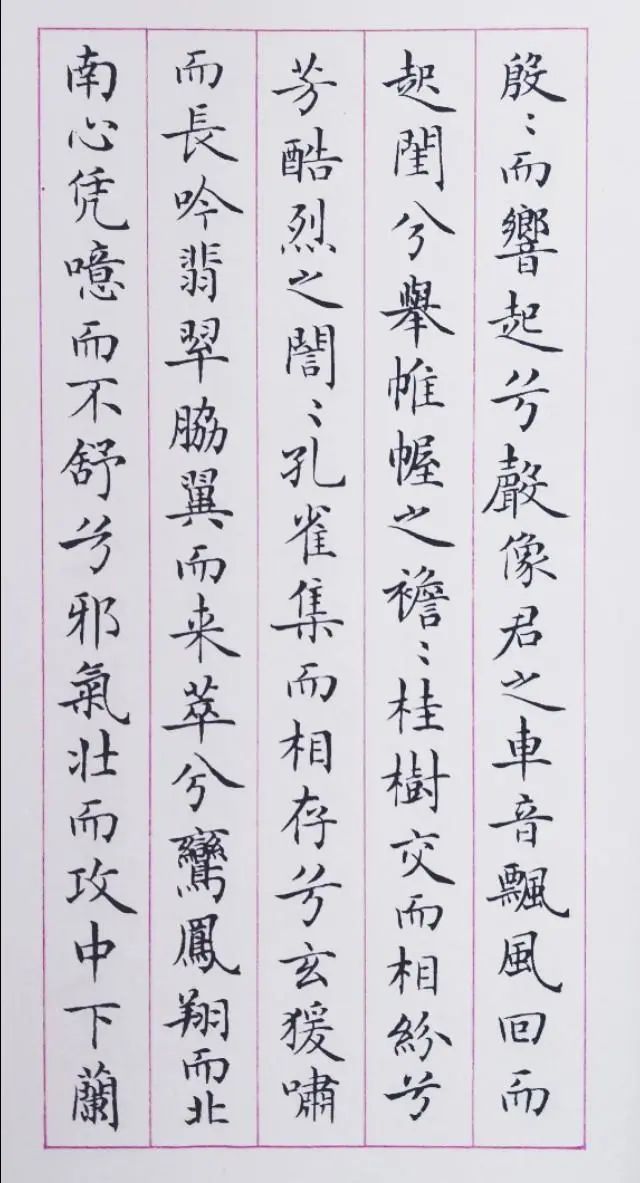 殷〻而響起兮聲像君之車音飄風回而
起閨兮舉帷幄之襜〻桂樹交而相紛兮
芳酷烈之誾〻孔雀集而相存兮玄猨嘯
而長吟翡翠脇翼而来萃兮鸞鳳翔而北
南心凭噫而不舒兮邪氣壯而攻中下蘭